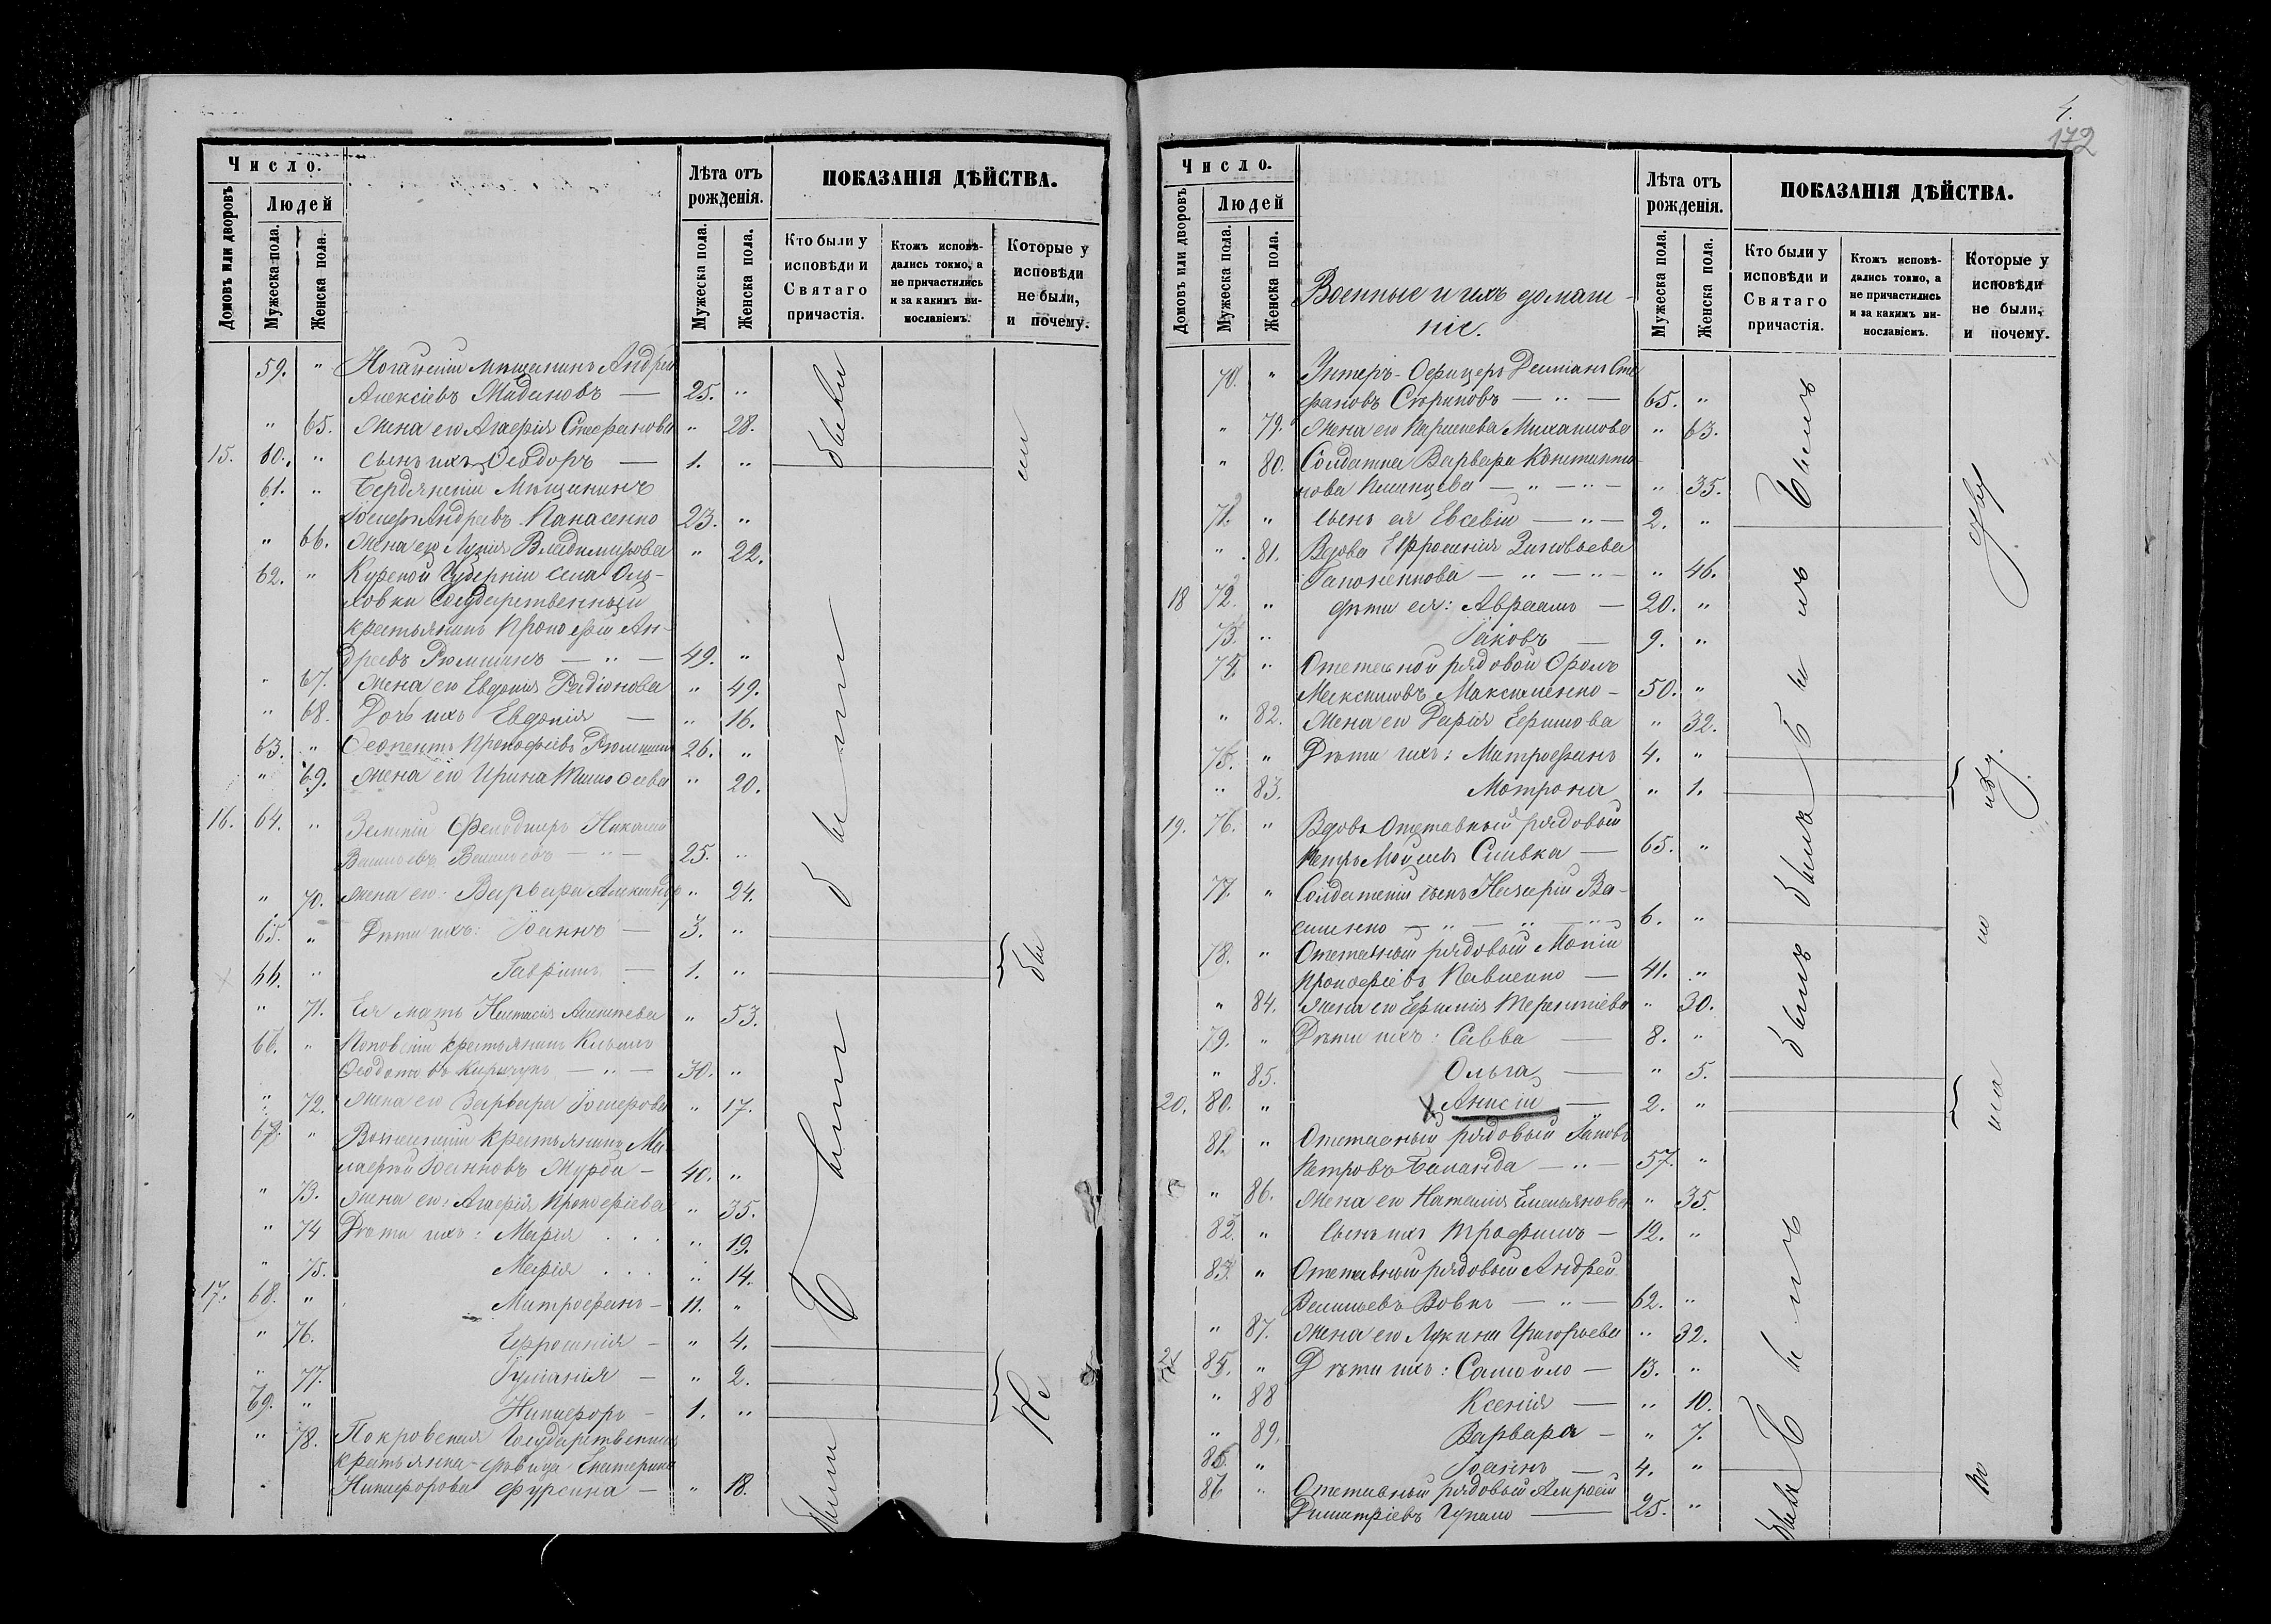 Число.
Домовъ или дворовъ
Людей
Мужеска пола.
Женска пола.
Лѣта отъ рожденія.
Мужеска пола.
Женска пола.
ПОКАЗАНІЯ ДѢЙСТВА.
Кто были у исповѣди и Святаго причастія.
Ктожъ исповѣдались токмо, а не причастились и за какимъ винословіемъ.
Которые у исповѣди не были, и почему.
59. " Ногайскій мѣщанинъ Андрей
Алексіевъ 25. "
" 65. Жена его Агафія Стефанова " 28.
15. 60. " Сынъ ихъ Ѳеодоръ — 1. "
61. " Бердянскій Мѣщанинъ
Іосифъ Андреевъ Панасенко 23. "
" 66. Жена его Лукія Владимирова " 22.
62. " Курской Губерніи села
Государственный
крестьянинъ Прокофій Ан-
дреевъ Рюмшинъ — " — 49. "
" 67. Жена его Евдокія Радіонова " 49.
" 68. Дочь ихъ Евдокія — " 16.
63. " Ѳеопентъ Прокофіевъ Рюмшинъ 26. "
" 69. Жена его Ирина Тимоѳеева " 20.
16. 64. " Николай
Васильевъ — " — 25. "
" 70. Жена его: Варвара Александр " 24.
65. " Дѣти ихъ: Іоаннъ — 3. "
66. " Гавріилъ — 1. "
" 71. Ея мать Настасія " 53.
66. " Поповскій крестьянинъ
— " — 30. "
" 72. Жена его Варвара Іосифова " 17.
67. " крестьянинъ Ма-
Іоанновъ Мурба — 40. "
" 73. Жена его: Агафія Прокофіева " 35.
" 74 Дѣти ихъ: Марія . . . " 19.
" 75. Марія . . . " 14.
17. 68. " Митрофанъ — 11. "
" 76. Ефросинія — " 4.
" 77. Іуліанія — " 2.
69. " Никифоръ — 1. "
" 78. Покровская Государственная
крестьянка-дѣвица Екатерина
Никифорова Фурсина — " 18.
были
были
Были
были
Не
бы
ли
4.
172
Число.
Домовъ или дворовъ
Людей
Мужеска пола.
Женска пола.
Военные и ихъ домаш-
ніе.
Лѣта отъ рожденія.
Мужеска пола.
Женска пола.
ПОКАЗАНІЯ ДѢЙСТВА.
Кто были у исповѣди и Святаго причастія.
Ктожъ исповѣдались токмо, а не причастились и за какимъ винословіемъ.
Которые у исповѣди не были, и почему.
70. " Унтеръ-Офицеръ Деміанъ Сте
фановъ Скриновъ — " — 65. "
" 79. Жена его Параскева Михаилова " 63.
" 80. Солдатка Варвара Константи
нова — " — " — " 35.
71. " Сынъ ея Евсевій — " — 2. "
" 81. Вдова Ефросинія Зиновьева
Гапоненкова — " — " — " 46.
18 72. " Дѣти ея: Авраамъ — 20. "
73. " Іаковъ — 9. "
74. " Отставной рядовой
Максимовъ Максименко — 50. "
" 82. Жена его Дарія Ефимова " 32.
75. " Дѣти ихъ: Митрофанъ 4. "
" 83. Мотрона " 1.
19. 76. " Вдовъ Отставный рядовый
Петръ Сливка — 65. "
77. " Солдатскій сынъ Назарій Ва-
силенко — " — " — 6. "
78. " Отставный рядовый Мокій
Прокофіевъ Павленко — 41. "
" 84. Жена его Ефимія Терентіева " 30.
79. " Дѣти ихъ: Савва — 8. "
" 85. Ольга — " 5.
20. 80. " Анисій — 2. "
81. " Отставный рядовый Іаковъ
Петровъ Баланда — " — 57. "
" 86. Жена его Наталія Емельянова " 35.
82. " Сынъ ихъ Трофимъ — 12. "
83. " Отставный рядовый Андрей
Васильевъ Вовкъ — " — 62. "
" 87. Жена его Лукина Григорьева " 32.
21 84. " Дѣти ихъ: Самойло — 13. "
" 88 Ксенія — " 10.
" 89. Варвара — " 7.
85. " Іоаннъ — 4. "
86 " Отставный рядовый
Димитріевъ — 25. "
Былъ
была
былъ
Былъ
была